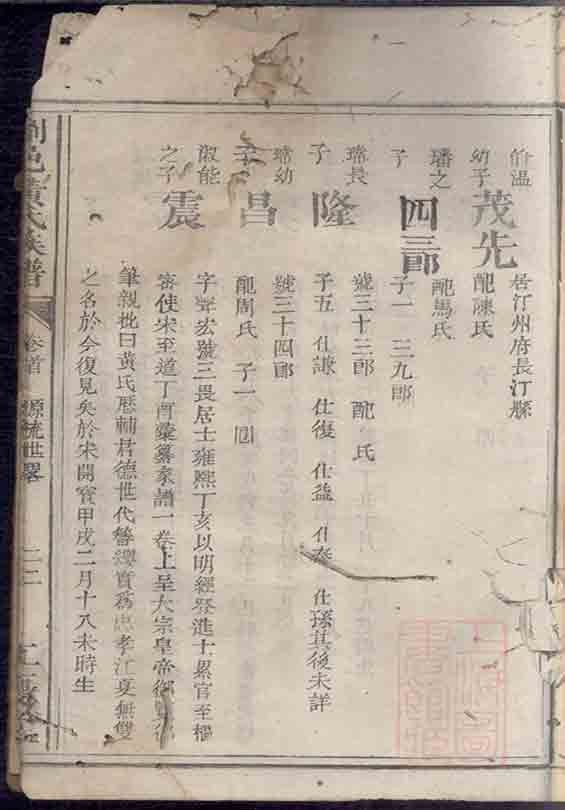 伯溫
幼子 茂先 居汀州府長汀縣
配陳氏
璠之
子 四三郎 配馬氏
子一 三九郎
瑞長
子 隆 號三十三郎 配 氏
子五 仕謙 仕復 仕益 仕泰 仕孫其後未詳
瑞幼
子 昌 號三十四郎
配周氏 子一
淑能
之子 震 字 宏號三畏居士雍熙丁亥以明經登進士累官至樞
密使宋至道丁酉彙纂家譜一卷上呈太宗皇帝御覽
筆親批曰黃氏歷輔君德世代簪纓實為忠孝江夏無雙
之名於今復見矣於宋開寶甲戌二月十八未時生
邑黃氏族譜 卷首 源流世畧